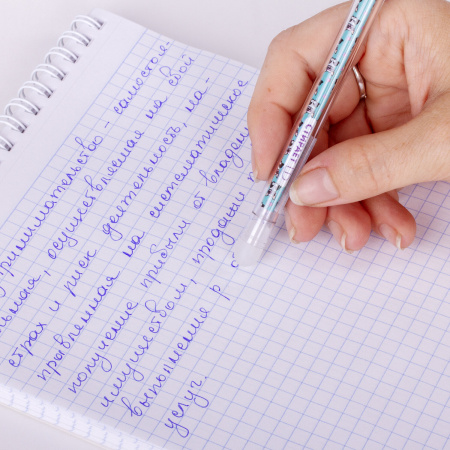 предпринимательство - самостоя-
льная, осуществляемая на свой
страх и риск деятельность, на-
правленная на систематическое
получение прибыли от владен
имуществом, продажи т
выполнения р о
услуг.
СТИРАЕТСЯ